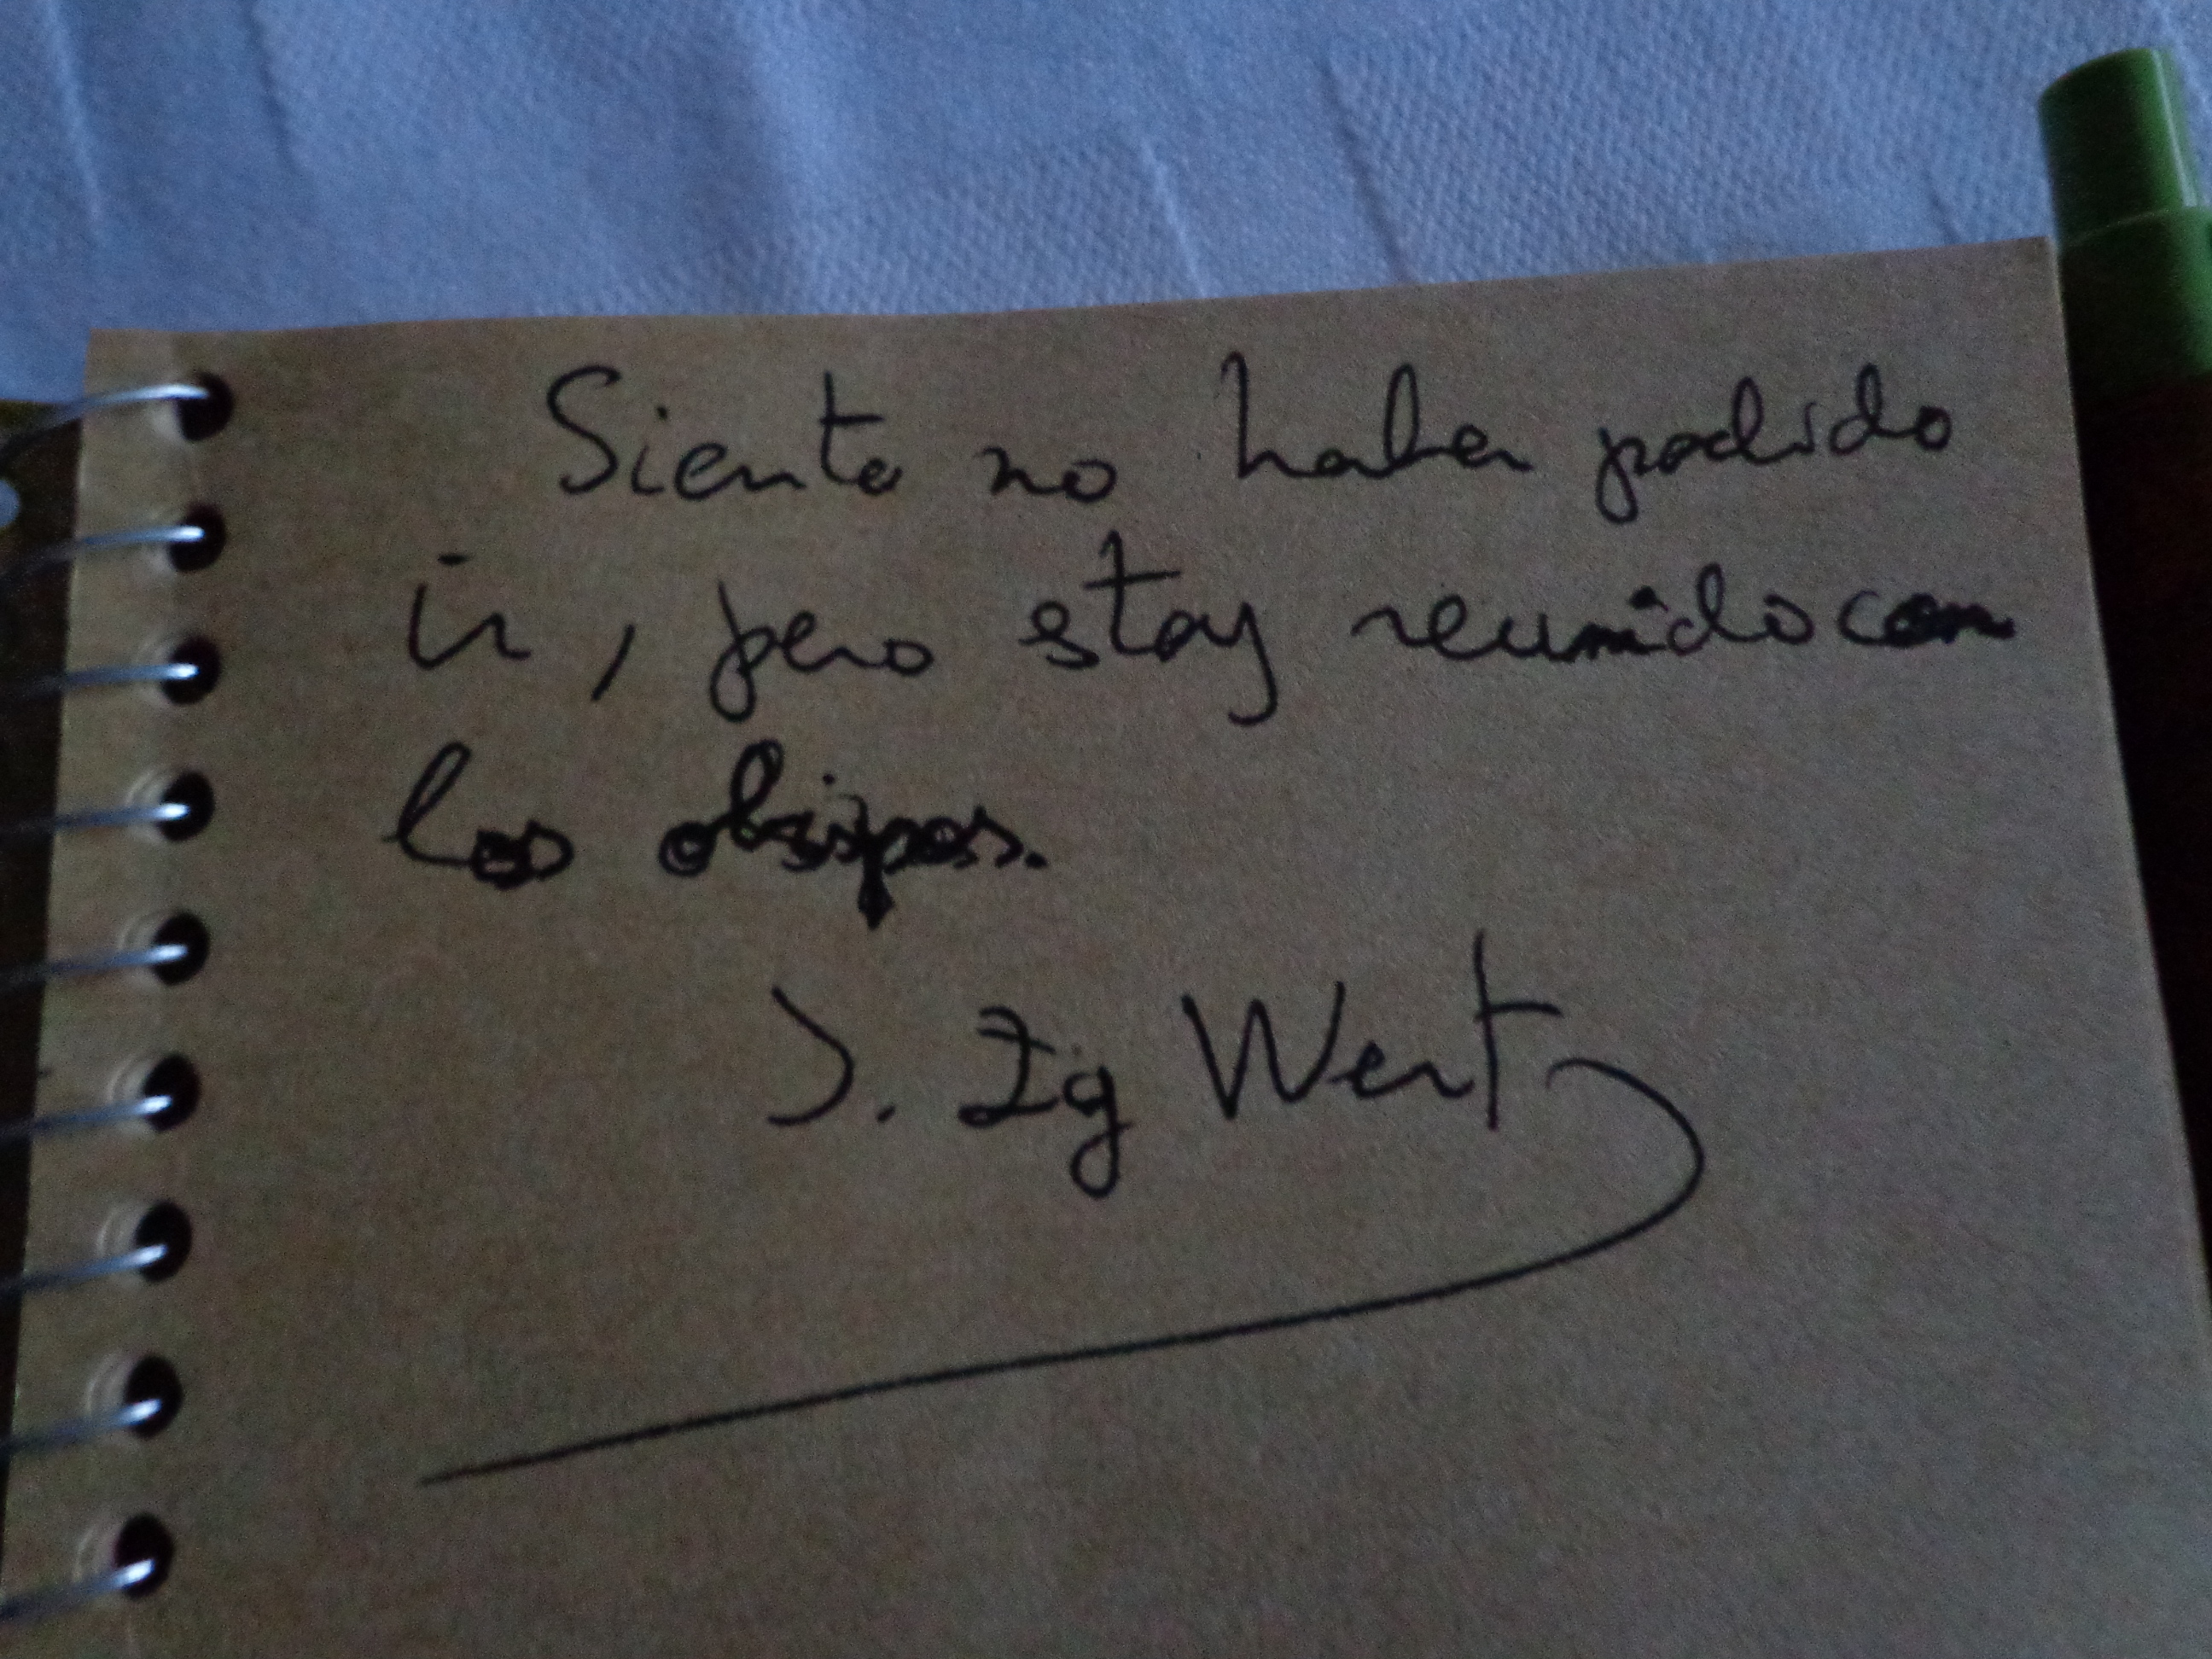 Siento no haber podido
ir, pero estoy reunido con
los obispos.
J. Ig Wert